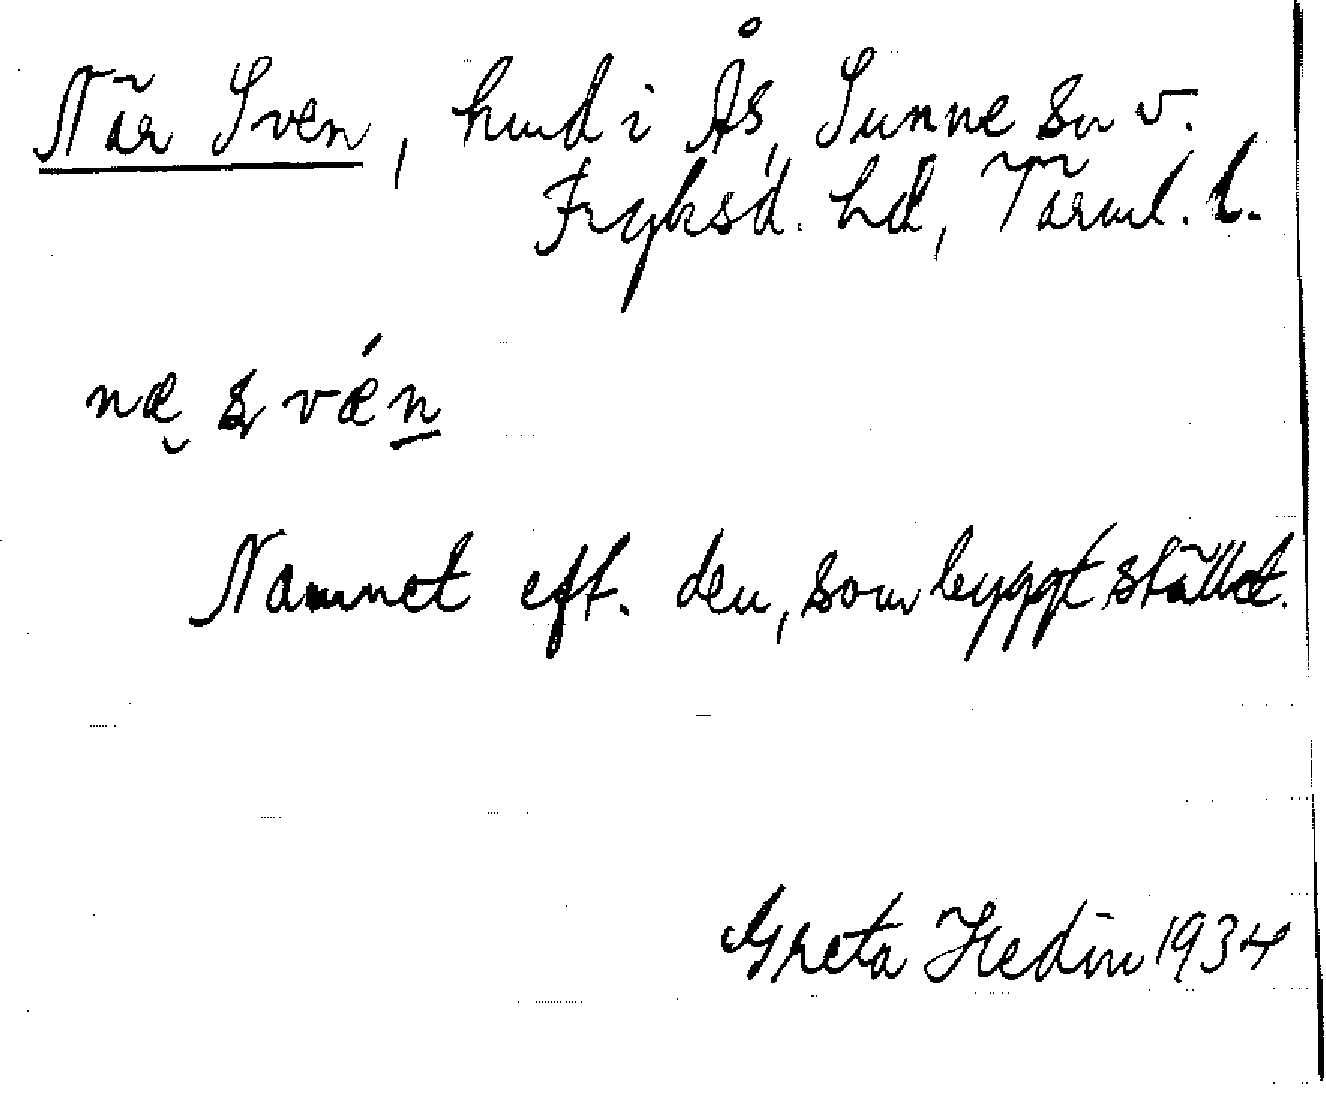 När Sven, hmd i Ås, Sunne sn v.
Fryksd. hd, Värml. l.
næ̮ s̬ vǽn̲
Namnet eft. den, som byggt stället.
Greta Hedin 1934